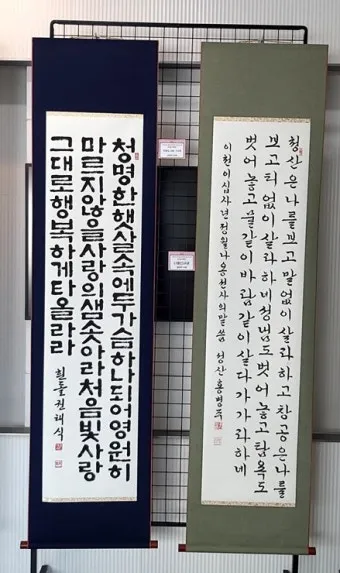 청명한햇살속에두가슴하나되어영원히
마르지않을사랑의샘솟아라처음빛사랑
그대로행복하게타올라라
흰돌권해식
청산은나를보고말없이살라하고창공은나를
보고티없이살라하네성냄도벗어놓고탐욕도
벗어놓고물같이바람같이살다가가라하네
이천이십사년정월나옹선사의말씀